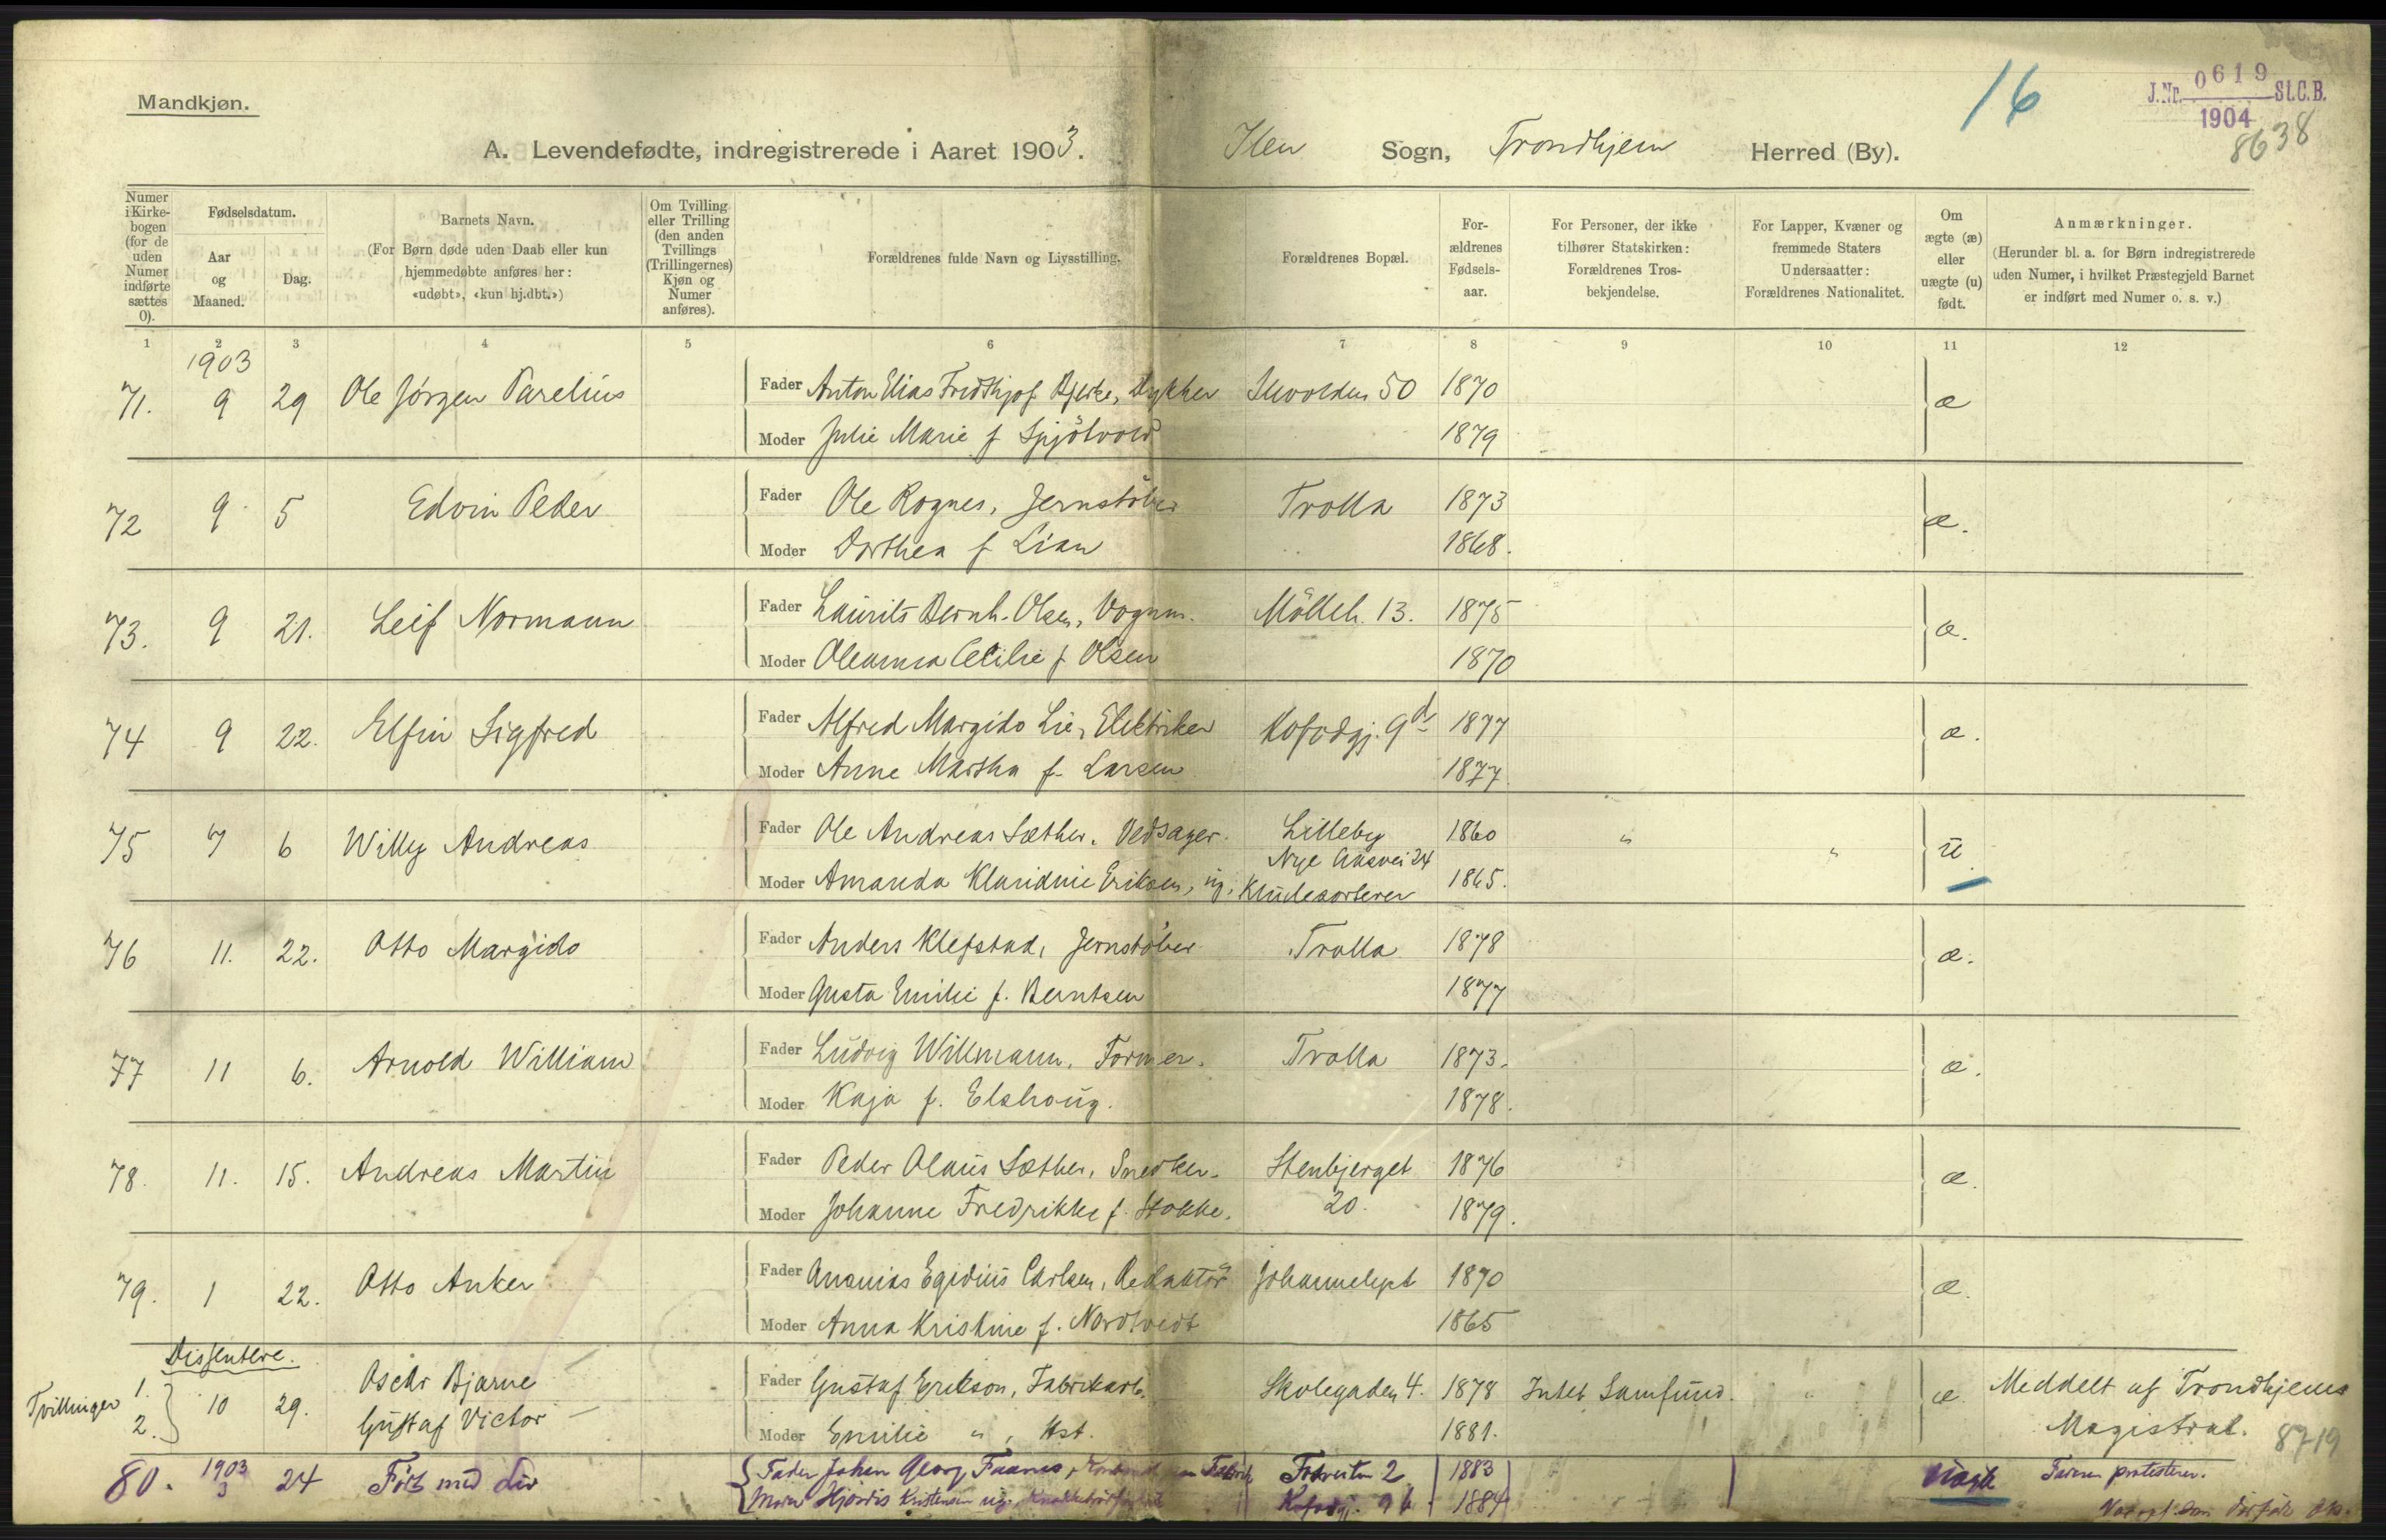 Mandkjøn.
16
J.Nr. 0619 St.C.B.
1904
8638
A. Levendefødte, indregistrerede i Aaret 1903. Ilen Sogn, Trondhjem Herred (By).
Numer i Kirkebogen (for de uden Numer indførte sættes 0).
Fødselsdatum.
Aar og Maaned.
Dag.
Barnets Navn.
(For Børn døde uden Daab eller kun hjemmedøbte anføres her: «udøbt», «kun hj.dbt.»)
Om Tvilling eller Trilling (den anden Tvillings (Trillingernes) Kjøn og Numer anføres).
Forældrenes fulde Navn og Livsstilling.
Forældrenes Bopæl.
Forældrenes Fødselsaar.
For Personer, der ikke tilhører Statskirken: Forældrenes Trosbekjendelse.
For Lapper, Kvæner og fremmede Staters Undersaatter: Forældrenes Nationalitet.
Om ægte (æ) eller uægte (u) født.
Anmærkninger.
(Herunder bl. a. for Børn indregistrerede uden Numer, i hvilket Præstegjeld Barnet er indført med Numer o. s. v.)
1 2 3 4 5 6 7 8 9 10 11 12
1903
71. 9 29 Ole Jørgen Parelius Fader Anton Elias Fredthjof Bjerke, Dykker Ilevolden 50 1870 æ
Moder Julie Marie f Spjøtvold 1879
72 9 5 Edvin Peder Fader Ole Rognes, Jernstøber Trolla 1873 æ.
Moder Dorthea f Lian 1868.
73. 9 21. Leif Normann Fader Laurits Bernh. Olsen, Vognm. Mölleb. 13. 1875 æ.
Moder Oleanna Cecilie f Olsen 1870
74 9 22. Elfin Sigfred Fader Alfred Margido Lie, Elektriker Kofodgj. 9d 1877 æ.
Moder Anne Martha f. Larsen 1877.
75 7 6 Willy Andreas Fader Ole Andreas Sæther. Vedsager. Lilleby 1860 " " u.
Nye Aasvei 24
Moder Amanda Klaridine Eriksen, ug, Kludesorterer 1865.
76 11. 22. Otto Margido Fader Anders Klefstad, Jernstøber Trolla 1878 æ.
Moder Gusta Emilie f. Berntsen 1877
77 11 6. Arnold William Fader Ludvig Willmann. Former. Trolla 1873. æ.
Moder Kaja f. Elshoug. 1878.
78. 11. 15. Andreas Martin Fader Peder Olaus Sæther, Snedker. Stenbjerget 1876 æ.
Moder Johanne Fredrikke f. Stokke. 20. 1879.
79. 1 22. Otto Anker Fader Ananias Egidius Carlsen, Redaktør 1870 æ.
Moder Anna Kristine f. Nordtvedt 1865
Dissentere.
Tvillinger 1. 10 29. Oscar Bjarne Fader Gustaf Erikson, Fabrikarb. Skolegaden 4. 1878 Intet Samfund. " æ Meddelt af Trondhjems
2. Gustaf Victor Moder Emilie " , Hst. 1881. Magistrat. 8719
80. 1903 3 24 Født med Liv Fader Johan Georg Faanes, 2 1883 Uægte Faren protesterer.
Moder Hjørdis Kristensen ug. Kofodgj. 9b 1884